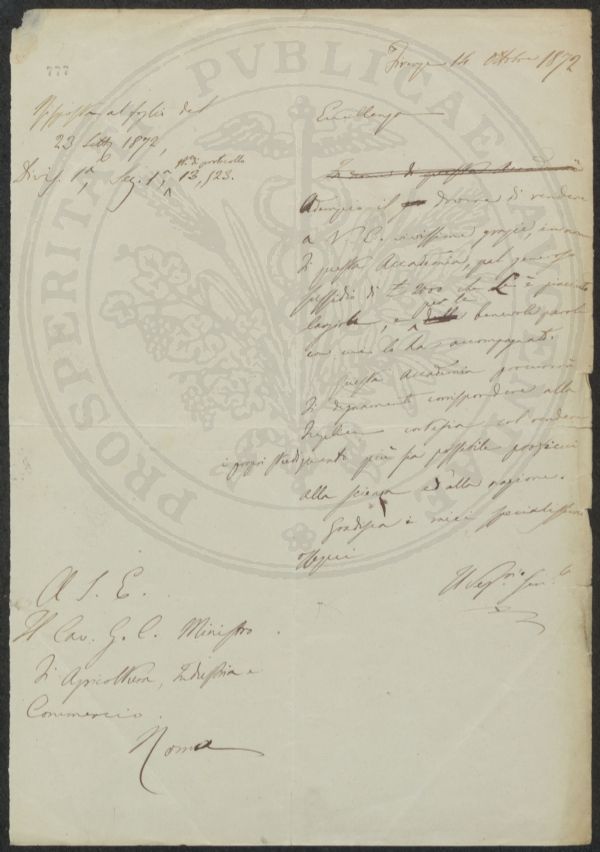 777
Firenze 14 Ottobre 1872
Risposta al foglio del
23 Sett. 1872,
Divis. 1a, Sez. 1a, N. di protocollo 13,123.
Eccellenza
In nome di questa Accademia
Adempio il dovere di rendere
a V. E. vivissime grazie, in nome
di questa Accademia, pel generoso
sussidio di £ 2000 che Le è piaciuto
largirle, e per le benevole parole
con cui lo ha accompagnato.
Questa Accademia procurerà
di degnamente corrispondere alla
cortesia col rendere
i propri studi quanto più sia possibile proficui
alla scienza ed alla nazione.
Gradisca i miei specialissimi
ossequi
Il Seg.rio
A S. E.
Il Cav. G. C. Ministro
di Agricoltura, Industria e
Commercio.
Roma
PROSPERITATI PUBLICAE AUGENDAE